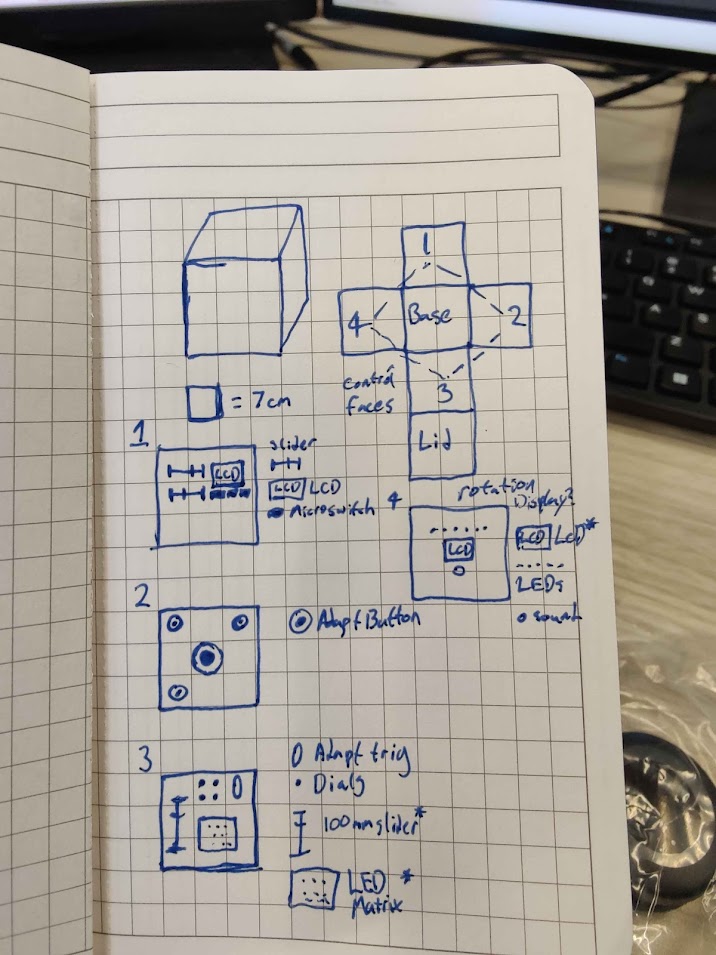 1
4
Base
2
control
faces
3
Lid
= 7cm
1
slider
LCD
LCD LCD
Microswitch
4
rotation
Display?
LCD
LCD LCD*
LEDs
sound
2
Adapt Button
3
Adapt trig
Dials
100mm slider*
LED *
Matrix